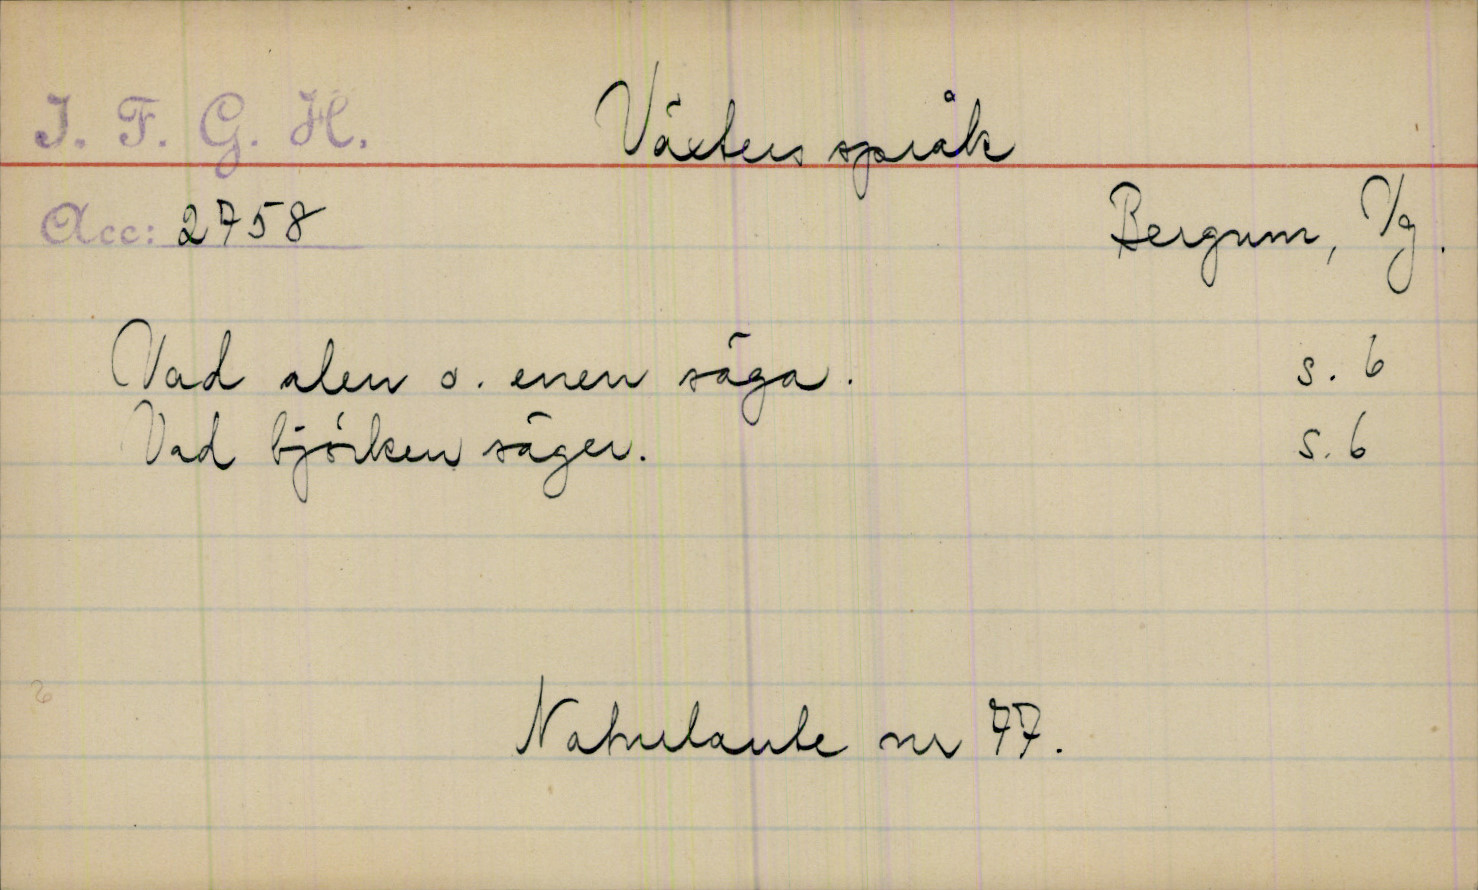 I. F. G. H.
Växters språk
Acc: 2758
Bergum, Vg.
Vad alen o. enen säga. s. 6
Vad björken säger. s. 6
Naturlaute nr 77.